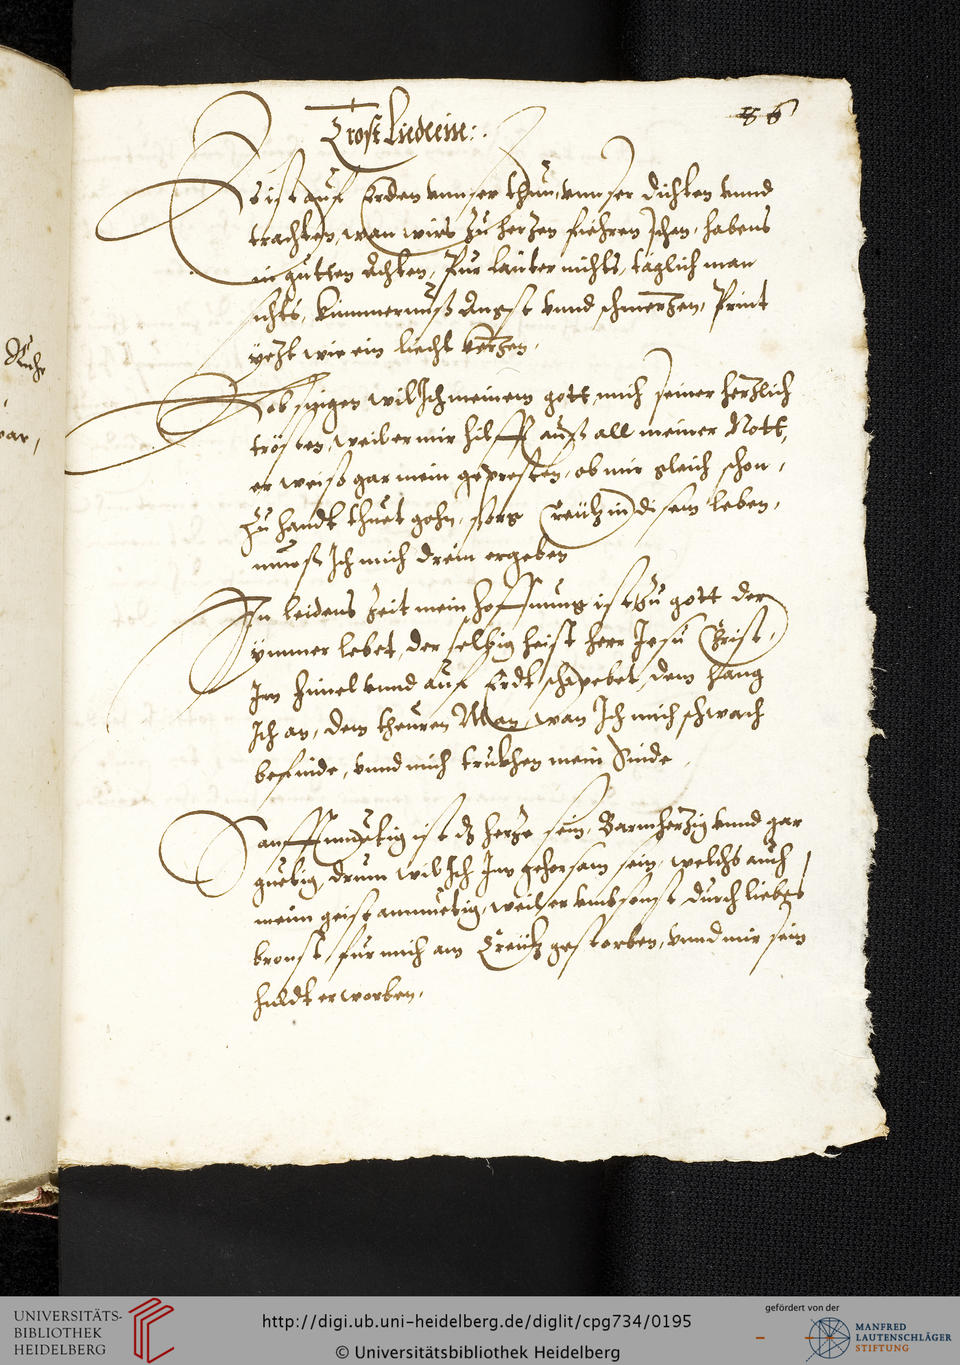 86
Trost Liedlein:.
Es ist auf Erden vnnser thun, vnnser dichten vnnd
trachten, wan wirs zu herzen fiehren Ichen, habens
in gutten Achten, Fur lauter nichts, täglich man
sichts, kümmernuß Angst vnnd schmerzen, Print
yezt wie ein liecht kerzen,
Lob singen wil Ich meinem gott, mich seiner herzlich
trösten, weil er mir hilfft auß all meiner Nott,
er weiß gar mein gepresten, ob mir gleich schon,
Zu handt thuet gohn, sorg Creütz in disem leben,
muoß Ich mich drein ergeben
In leidens Zeit mein hoffnung ist Zu gott der
ymmer lebet, der selbig heist herr Jesu Crist,
Im himel vnnd auf Erdt schwebet, dem hang
Ich an, dem theuren Man, wan Ich mich schwach
befinde, vnnd mich trukhen mein Sinde
Sanfftmüetig ist dz herze sein, Barmherzig vnnd gar
guetig, drum wil Ich Im gehorsam sein, welchs auch
meim geist anmuetig, weil er vmb sonst durch liebes
bronst, fur mich am Creütz gestorben, vnnd mir sein
huldt erworben,
UNIVERSITÄTS-
BIBLIOTHEK
HEIDELBERG
http://digi.ub.uni-heidelberg.de/diglit/cpg734/0195
© Universitätsbibliothek Heidelberg
gefördert von der
MANFRED
LAUTENSCHLÄGER
STIFTUNG